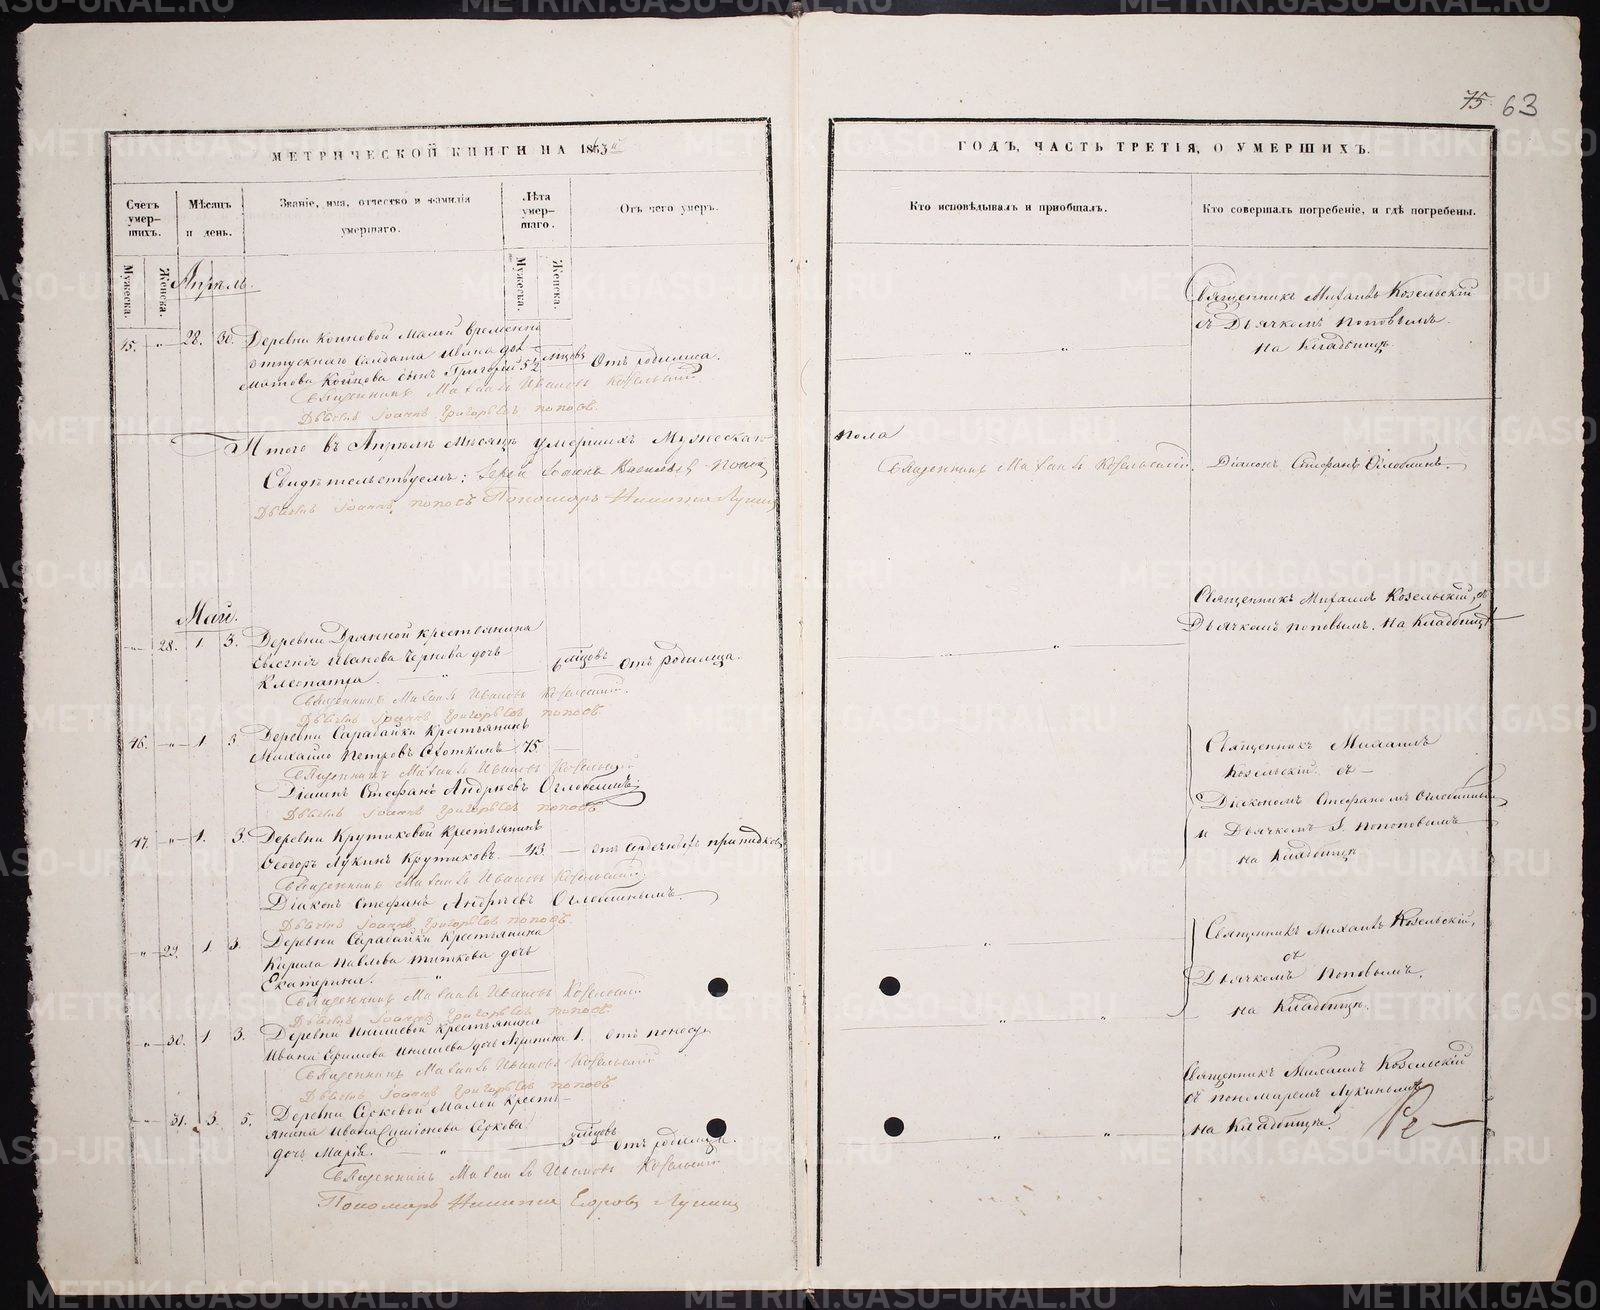 75 63
МЕТРИЧЕСКОЙ КНИГИ НА 1863й
ГОДЪ, ЧАСТЬ ТРЕТІЯ, О УМЕРШИХЪ.
Счетъ умер-шихъ.
Мѣсяцъ и день.
Званіе, имя, отчество и фамилія умершаго.
Лѣта умер-шаго.
Отъ чего умеръ.
Кто исповѣдывалъ и пріобщалъ.
Кто совершалъ погребеніе, и гдѣ погребены.
Мужеска.
Женска.
Мужеска.
Женска.
Апрѣль.
15. " 28. 30. Деревни Коиновой Малой временно
отпускнаго Солдата Ивана
Коинова сынъ Григорій 5½ мѣсцовъ Отъ родимца.
Священникъ Михаилъ Ивановъ Козельскій
Дьячекъ Іоаннъ Григорьевъ Поповъ.
Священникъ Михаилъ Козельскій
съ Дьячкомъ Поповымъ.
на Кладбищѣ.
Итого въ Апрѣлѣ Мѣсяцѣ умершихъ Мужескаго
пола
Свидѣтельствуемъ: Іерей Іоаннъ
Священникъ Михаилъ Козельскій.
Діаконъ Стефанъ Оглоблинъ.
Дьячекъ Іоаннъ Поповъ Пономарь Никита Лукинъ
Май.
" 28. 1 3. Деревни крестьянина
Евгенія Иванова Чернова дочь
Клеопатра. " 6 мѣсцовъ Отъ родимца.
Священникъ Михаилъ Ивановъ Козельскій.
Дьячекъ Іоаннъ Григорьевъ Поповъ
Священникъ Михаилъ Козельскій, съ
Дьячкомъ Поповымъ. на Кладбищѣ
16. " 1. 3 Деревни Сарабайки Крестьянинъ
Михайло Петровъ Охоткинъ 75
Священникъ Михаилъ Ивановъ Козельскій
Діаконъ Стефанъ Андреевъ Оглоблинъ
Дьячекъ Іоаннъ Григорьевъ Поповъ
Священникъ Михаилъ
Козельскій съ
Діакономъ Стефаномъ Оглоблинымъ
и Дьячкомъ І. Поповымъ
на Кладбищѣ
17. " 1. 3. Деревни Крутиковой Крестьянинъ
Ѳеодоръ Лукинъ Крутиковъ 43. отъ
Священникъ Михаилъ Ивановъ Козельскій
Діаконъ Стефанъ Андреевъ Оглоблинымъ.
Дьячекъ Іоаннъ Григорьевъ Поповъ.
" 29. 1 3. Деревни Сарабайки Крестьянина
Кирила Павлова Титкова дочь
Екатерина. "
Священникъ Михаилъ Ивановъ Козельскій
Дьячекъ Іоаннъ Григорьевъ Поповъ
Священникъ Михаилъ Козельскій,
съ
Дьячкомъ Поповымъ.
на Кладбищѣ.
" 30. 1 3. Деревни Инишевой крестьянина
Ивана Ефимова Инишева дочь 1. отъ поносу
Священникъ Михаилъ Ивановъ Козельскій
Дьячекъ Іоаннъ Григорьевъ Поповъ
" 31. 3. 5. Деревни Серковой Малой кресть-
янина Ивана Симіонова Серкова
дочь Марія. " 3 мѣсцовъ Отъ родимца.
Священникъ Михаилъ Ивановъ Козельскій
Пономарь Никита Егоровъ Лукинъ
Священникъ Михаилъ Козельскій
съ пономаремъ Лукинымъ
на Кладбищѣ.
METRIKI.GASO-URAL.RU